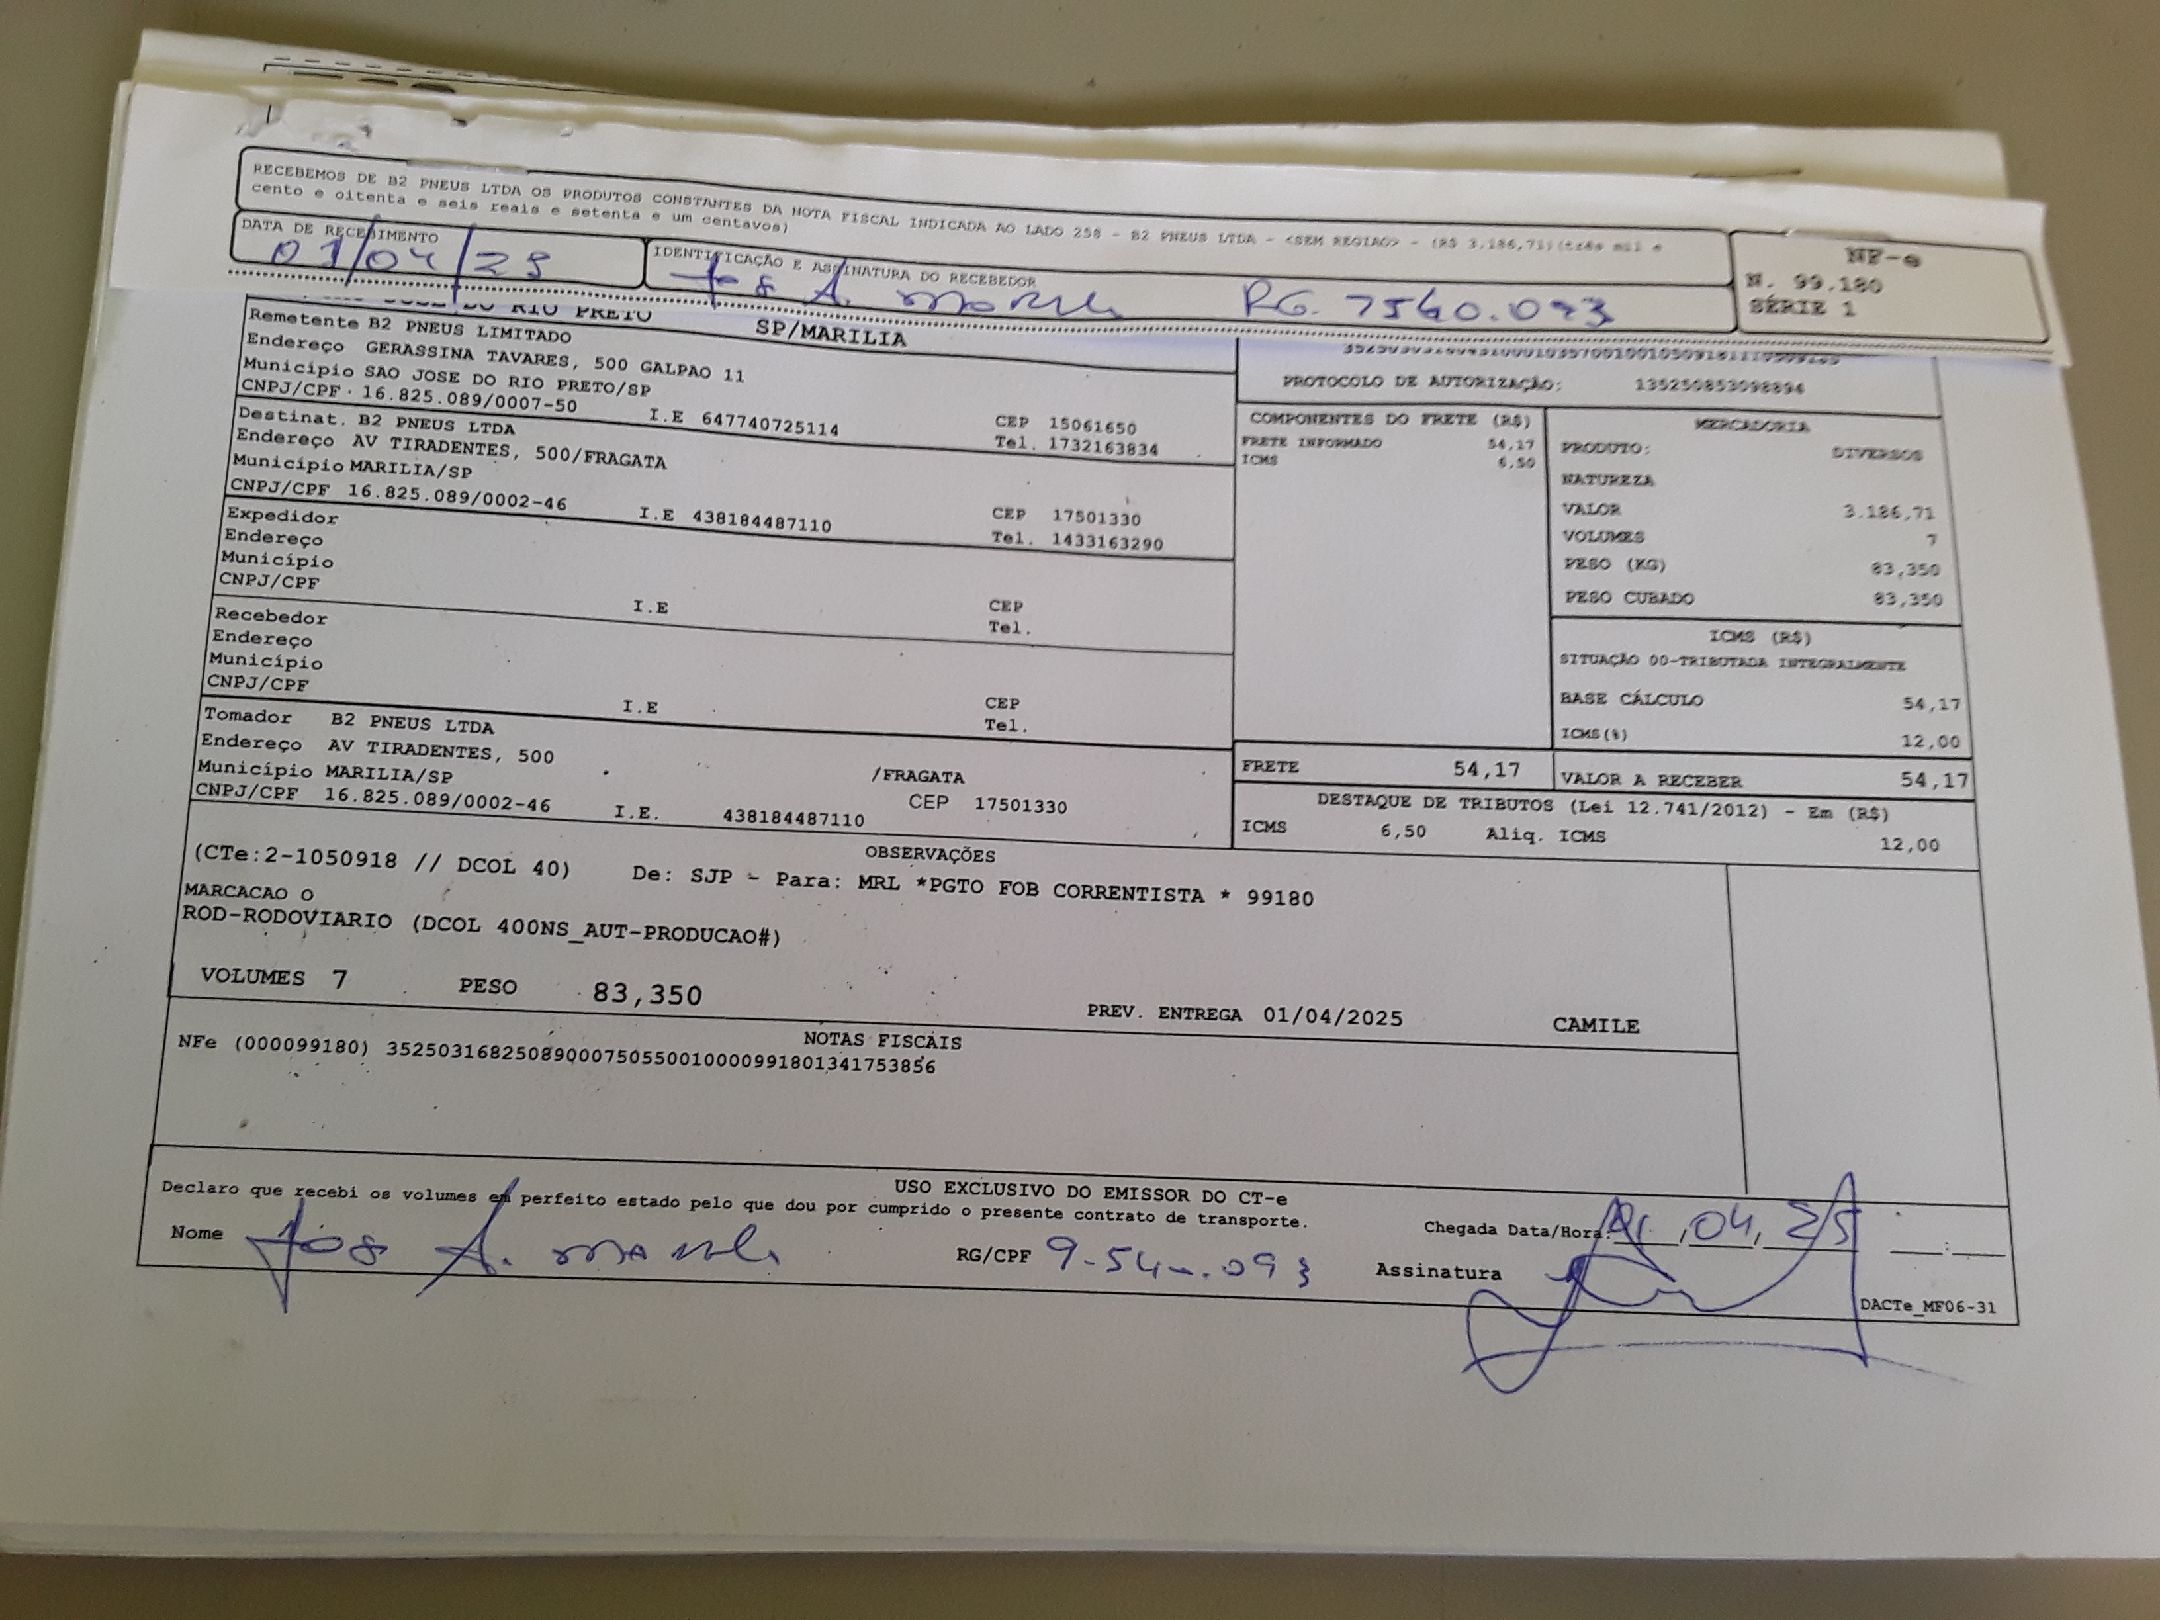 RECEBEMOS DE B2 PNEUS LTDA OS PRODUTOS CONSTANTES DA NOTA FISCAL INDICADA AO LADO 258 - B2 PNEUS LTDA - <SEM REGIAO> - (R$ 3.186,71)(três mil e
cento e oitenta e seis reais e setenta e um centavos)
DATA DE RECEBIMENTO
01/04/25
IDENTIFICAÇÃO E ASSINATURA DO RECEBEDOR
RG. 7540.093
NF-e
N. 99.180
SÉRIE 1
RIO PRETO
SP/MARILIA
Remetente B2 PNEUS LIMITADO
Endereço GERASSINA TAVARES, 500 GALPAO 11
Município SAO JOSE DO RIO PRETO/SP
CNPJ/CPF 16.825.089/0007-50 I.E 647740725114 CEP 15061650
Tel. 1732163834
Destinat. B2 PNEUS LTDA
Endereço AV TIRADENTES, 500/FRAGATA
Município MARILIA/SP
CNPJ/CPF 16.825.089/0002-46 I.E 438184487110 CEP 17501330
Tel. 1433163290
Expedidor
Endereço
Município
CNPJ/CPF I.E CEP
Tel.
Recebedor
Endereço
Município
CNPJ/CPF I.E CEP
Tel.
Tomador B2 PNEUS LTDA
Endereço AV TIRADENTES, 500 /FRAGATA
Município MARILIA/SP CEP 17501330
CNPJ/CPF 16.825.089/0002-46 I.E. 438184487110
PROTOCOLO DE AUTORIZAÇÃO: 135250853098894
COMPONENTES DO FRETE (R$)
FRETE INFORMADO 54,17
ICMS 6,50
MERCADORIA
PRODUTO: DIVERSOS
NATUREZA
VALOR 3.186,71
VOLUMES 7
PESO (KG) 83,350
PESO CUBADO 83,350
ICMS (R$)
SITUAÇÃO 00-TRIBUTADA INTEGRALMENTE
BASE CÁLCULO 54,17
ICMS(%) 12,00
FRETE 54,17 VALOR A RECEBER 54,17
DESTAQUE DE TRIBUTOS (Lei 12.741/2012) - Em (R$)
ICMS 6,50 Aliq. ICMS 12,00
OBSERVAÇÕES
(CTe:2-1050918 // DCOL 40) De: SJP - Para: MRL *PGTO FOB CORRENTISTA * 99180
MARCACAO O
ROD-RODOVIARIO (DCOL 400NS_AUT-PRODUCAO#)
VOLUMES 7 PESO 83,350 PREV. ENTREGA 01/04/2025 CAMILE
NOTAS FISCAIS
NFe (000099180) 35250316825089000750550010000991801341753856
USO EXCLUSIVO DO EMISSOR DO CT-e
Declaro que recebi os volumes em perfeito estado pelo que dou por cumprido o presente contrato de transporte.
Chegada Data/Hora: 01,04,25 :
Nome RG/CPF Assinatura
DACTe_MF06-31